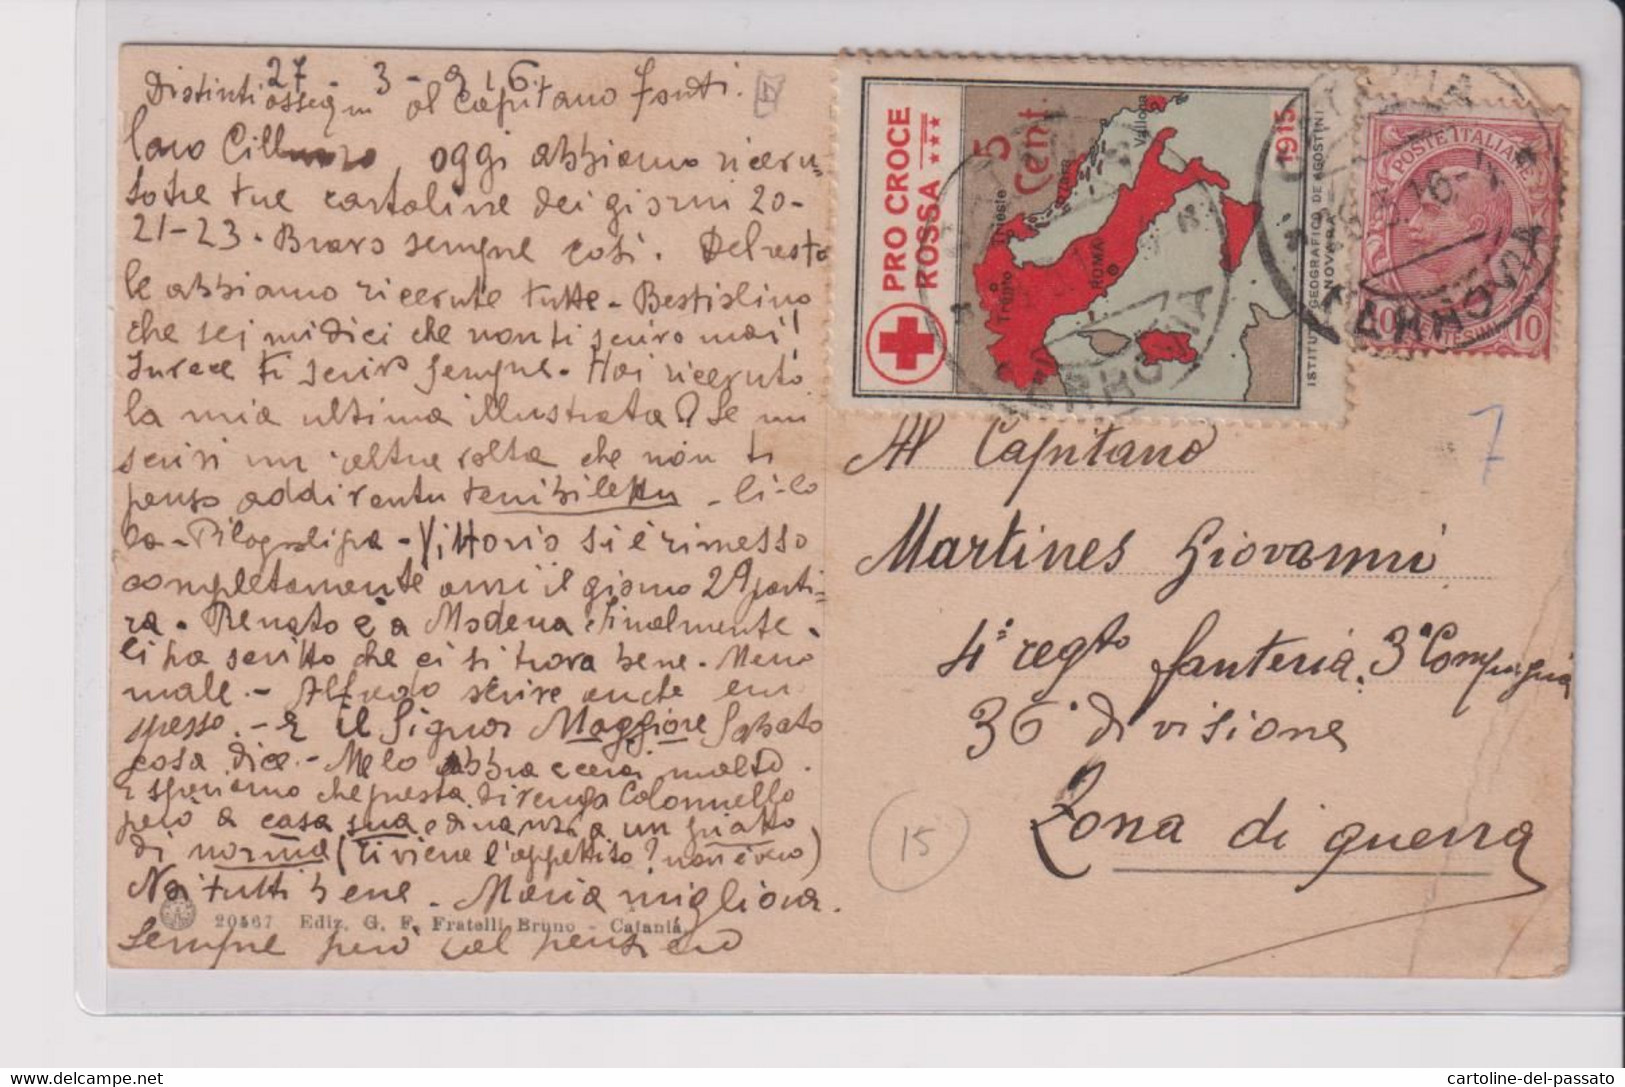 27 - 3 - 916
Distinti ossequi al Capitano Fonti.
Caro oggi abbiamo ricevu-
to tre tue cartoline dei giorni 20-
21-23. Bravo sempre così. Del resto
le abbiamo ricevute tutte -
che sei mi dici che non ti scrivo mai!
Invece ti scrivo sempre. Hai ricevuto
la mia ultima illustrata? Se mi
scrivi un'altra volta che non ti
penso addirentu -
- Vittorio si è rimesso
completamente anzi il giorno 29 parti-
rà. Renato è a Modena finalmente.
Ci ha scritto che ci si trova bene. Meno
male. - Alfredo scrive anche
spesso. - E il Signor Maggiore Sabato
cosa dice. - Me lo abbraccerai molto.
E speriamo che presto divenga Colonnello
però a casa sua e dinanzi a un piatto
di norma (ti viene l'appettito? non è vero)
Noi tutti bene. Maria migliora.
20567 Ediz. G. F. Fratelli Bruno - Catania
Sempre però col pensiero
PRO CROCE
ROSSA
5
Cent.
1915
Trento
Trieste
Zara
Vallona
ROMA
ISTITUTO GEOGRAFICO DE AGOSTINI
NOVARA
POSTE ITALIANE
10 CENTESIMI 10
7
Al Capitano
Martines Giovanni
4° regto fanteria 3ª Compagnia
36ª divisione
Zona di guerra
15
cartoline-del-passato